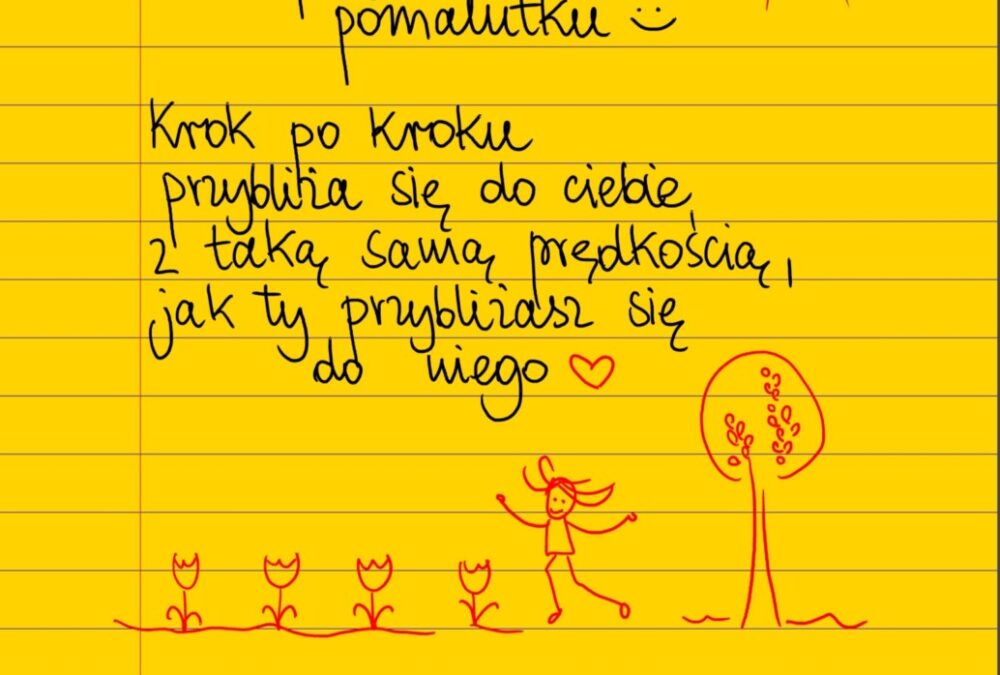 pomalutku
Krok po kroku
przybliża się do ciebie
z taką samą prędkością,
jak ty przybliżasz się
do niego